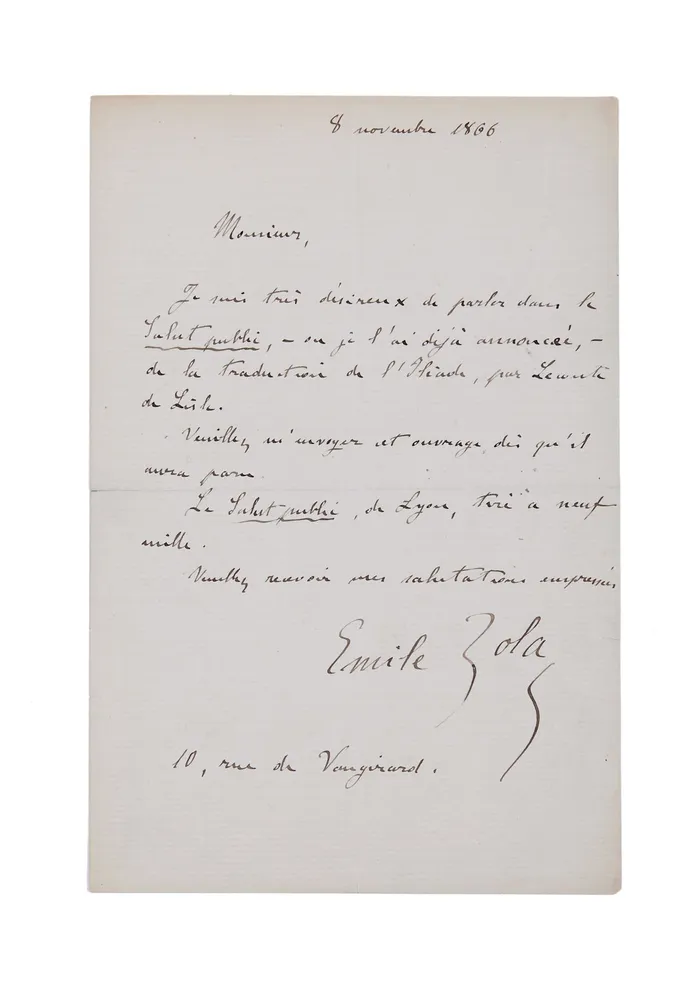 8 novembre 1866
Monsieur,
Je suis très désireux de parler dans le
Salut public, – ou je l'ai déjà annoncée, –
de la traduction de l'Iliade, par Leconte
de Lisle.
Veuillez m'envoyer cet ouvrage dès qu'il
aura paru.
Le Salut public, de Lyon, tire à neuf
mille.
Veuillez recevoir mes salutations empressées
Emile Zola
10, rue de Vaugirard.